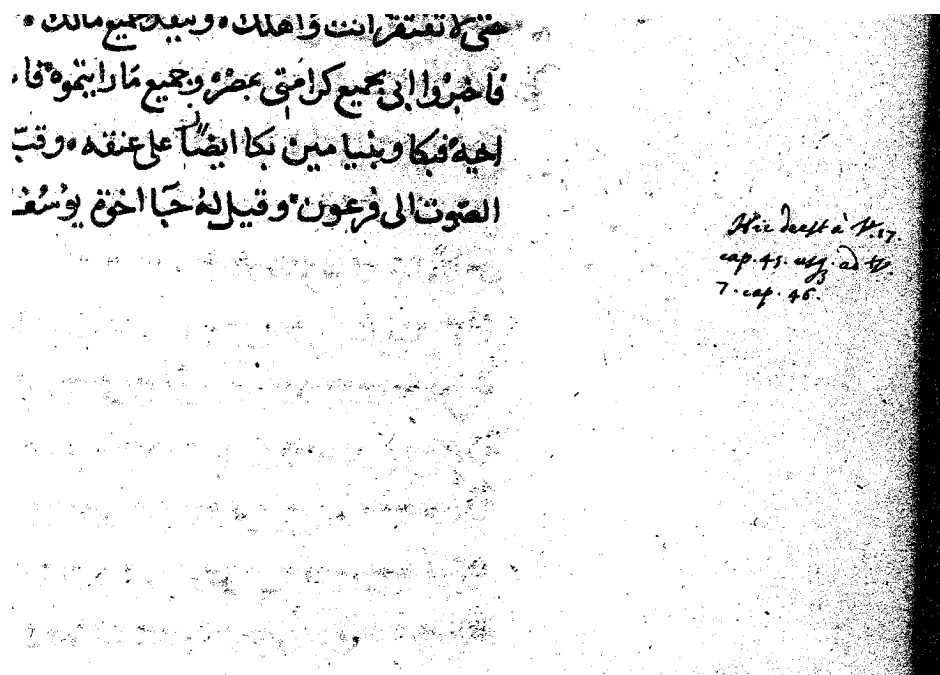 حتى لا تفتقر انت واهلك ۰ وينفد جميع مالك ۰
فاخبروا ابى بجميع كرامتى بمصر ۰ وجميع ما رايتموه ۰ فا
اخيه ۰ فبكا وبنيامين بكا ايضًا على عنقه ۰ وقبّ
الصوت الى فرعون ۰ وقيل له جآ اخوة يوسف
Hic deest à V. 17.
cap. 45. usq. ad V.
7. cap. 46.